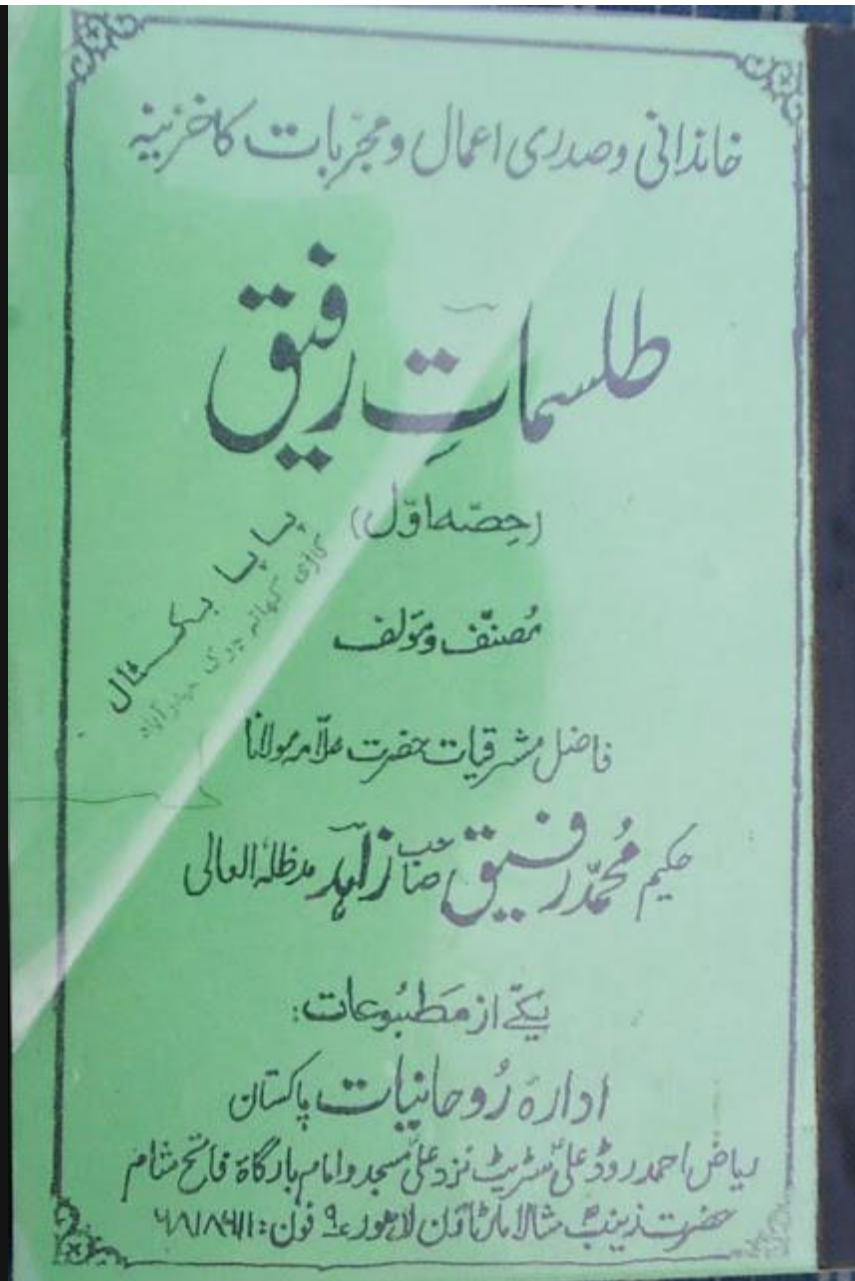 خاندانی و صدری اعمال و مجربات کا خزینہ
طلسماتِ رفیق
(حصّہ اوّل)
پاپا بکسٹال
گاڑی کھاتہ حیدرآباد
مُصنّف و مؤلف
فاضل مشرقیات حضرت علّامہ مولانا
حکیم مُحمّد رفیق صاحب زاہد مدظلہٗ العالی
یکے از مَطبُوعات:
ادارہ رُوحانیات پاکستان
ریاض احمد روڈ علیؑ سٹریٹ نزد علیؑ مسجد و امام بارگاہ فاتح شام
حضرت زینبؑ شالامار ٹاؤن لاہور ۹ فون: ۶۸۱۸۶۱۱